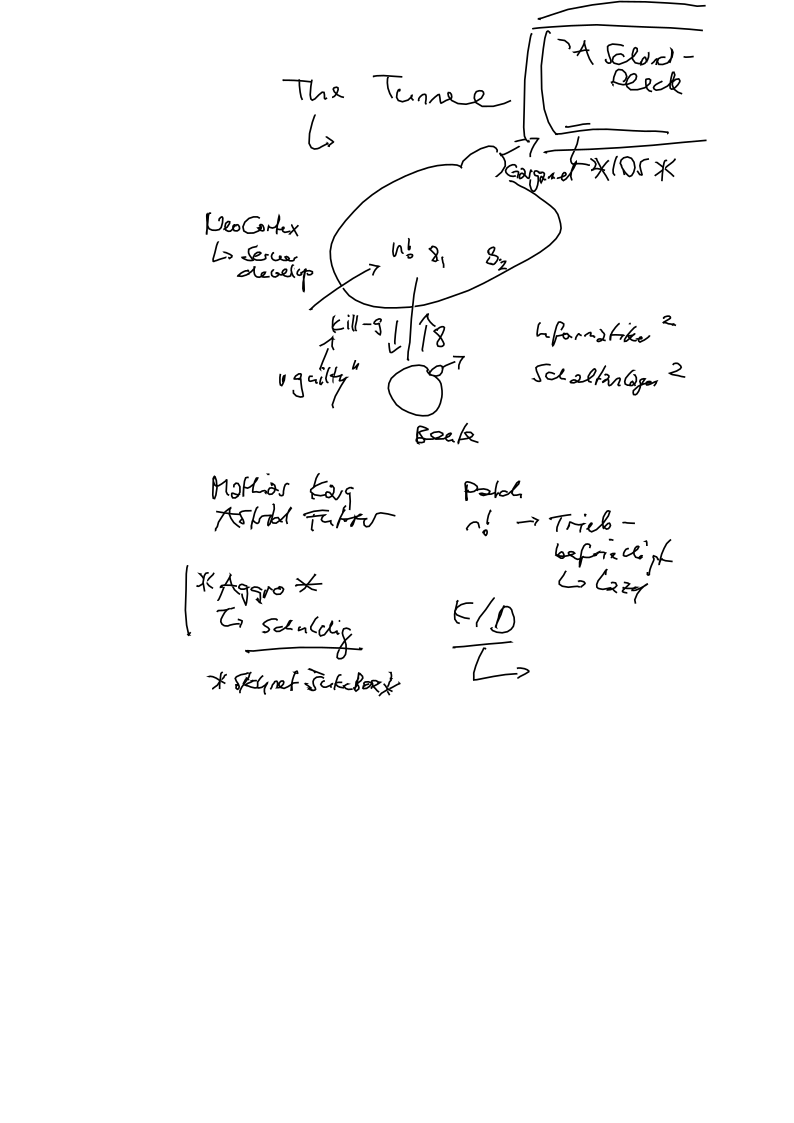 The Tunnel
"A Schord-
Gargamel *IDS*
NeoCortex
↳ Server
develop
n! 8₁ 8₂
kill-9 8
"guilty"
Informatiker ²
Schaltanlagen ²
Beate
Mathias Karg
Astrid
Patch
n! → Trieb-
befriedigt
↳ Lazy
*Aggro*
↳ Schuldig
K/D
*Skynet Jukebox*